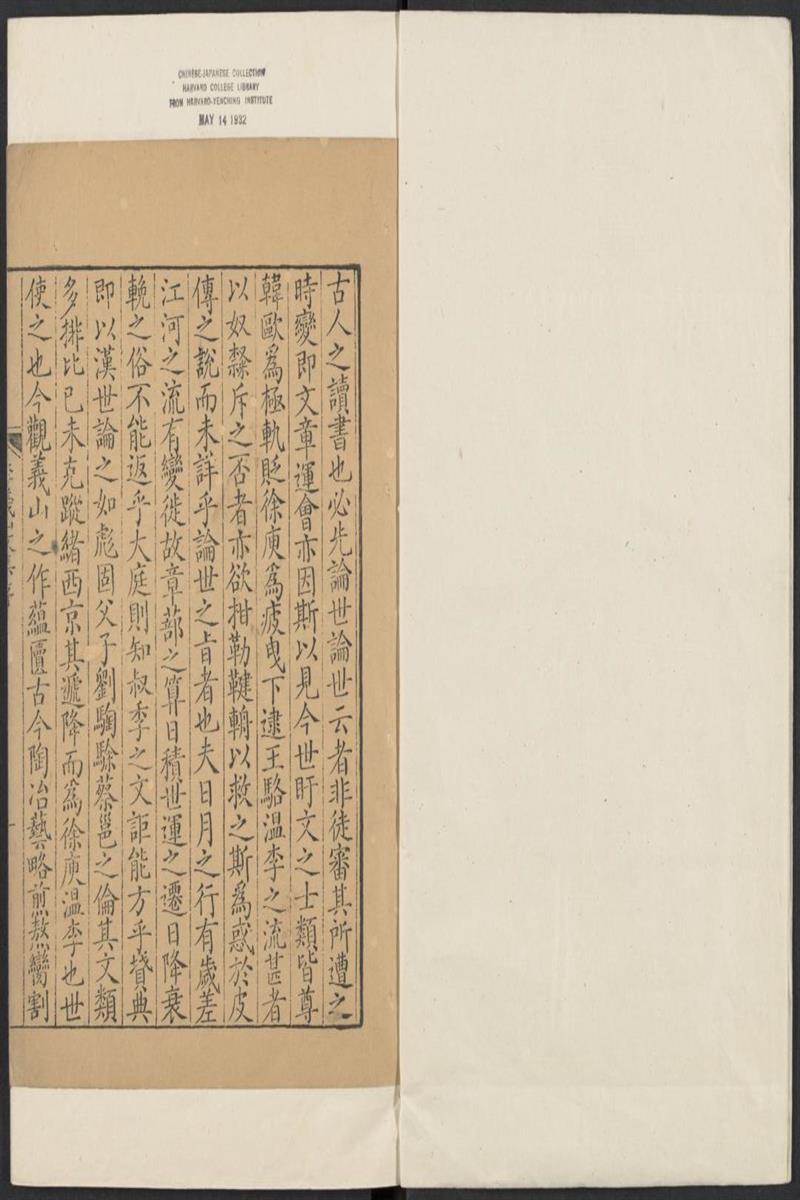 CHINESE-JAPANESE COLLECTION
HARVARD COLLEGE LIBRARY
FROM HARVARD-YENCHING INSTITUTE
MAY 14 1932
古人之讀書也必先論世論世云者非徒審其所遭之
時變即文章運會亦因斯以見今世盱文之士類皆尊
韓歐爲極軌貶徐庾爲疲曳下逮王駱溫李之流甚者
以奴隸斥之否者亦欲拑勒鞬輈以救之斯爲惑於皮
傳之說而未詳乎論世之旨者也夫日月之行有歲差
江河之流有變徙故章蔀之算日積世運之遷日降衰
輓之俗不能返乎大庭則知叔季之文詎能方乎蕡典
即以漢世論之如彪固父子劉騊駼蔡邕之倫其文類
多排比已未克蹤緒西京其遞降而爲徐庾溫李也世
使之也今觀義山之作蘊匵古今陶冶藝略煎熬臠割